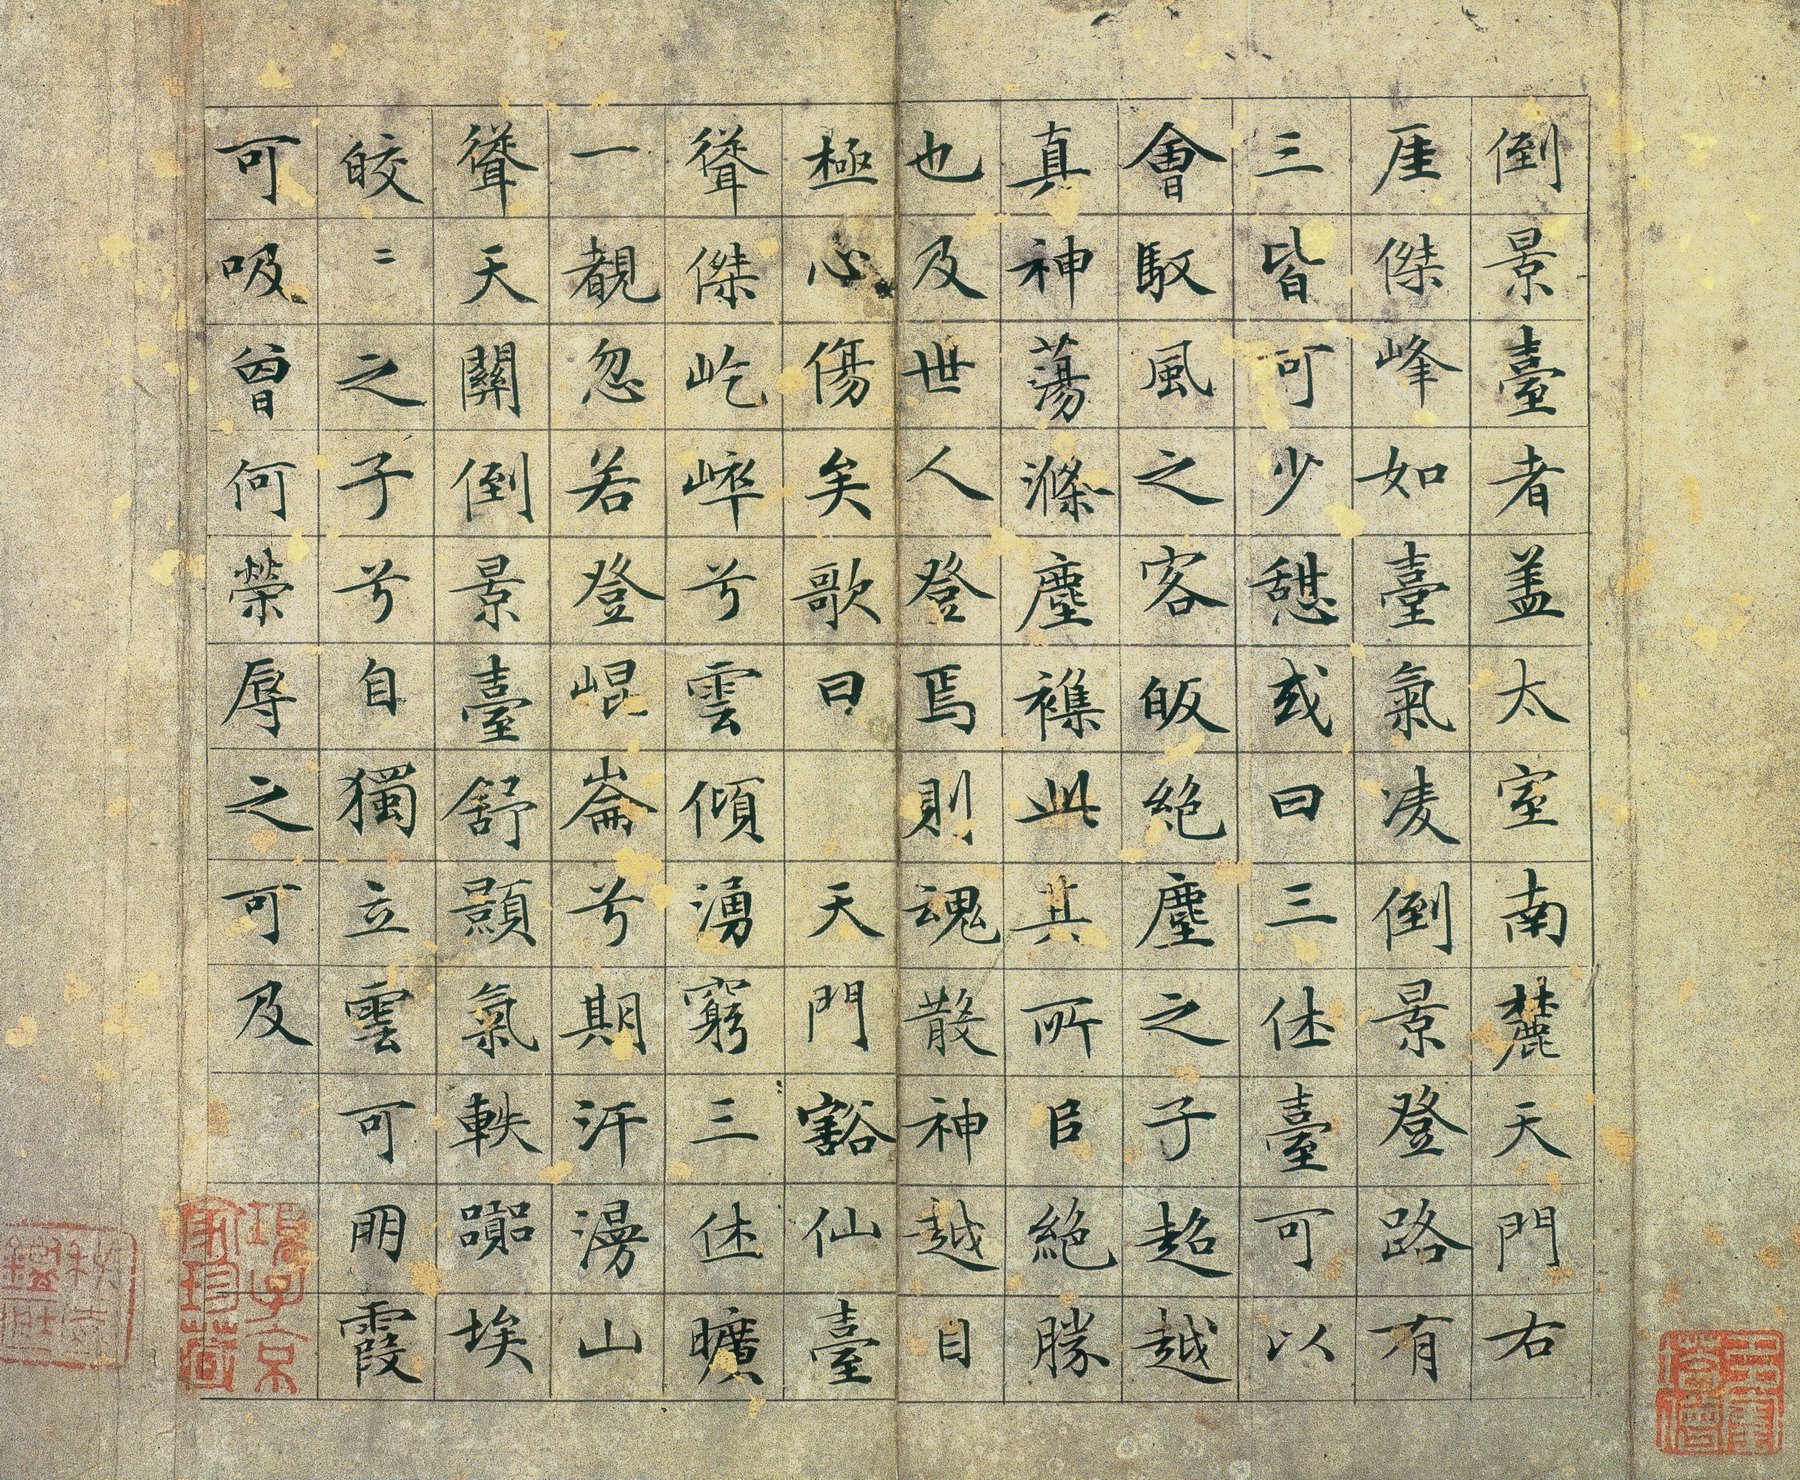 倒景臺者盖太室南麓天門右
厓傑峰如臺氣凌倒景登路有
三皆可少憩或曰三休臺可以
會馭風之客皈絶塵之子超越
真神蕩滌塵襍此其所㠯絶勝
也及世人登焉則魂散神越目
極心傷矣歌曰　天門豁仙臺
聳傑屹崒兮雲傾湧窮三休曠
一覩忽若登崐崙兮期汗漫仙
聳天關倒景臺舒兮顥氣軼囂埃
皎〻之子兮自獨立雲可朋霞
可吸曾何榮辱之可及
項子京
家珍藏